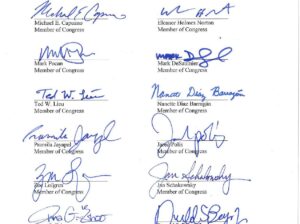 Michael E. Capuano
Member of Congress
Eleanor Holmes Norton
Member of Congress
Mark Pocan
Member of Congress
Mark DeSaulnier
Member of Congress
Ted W. Lieu
Ted W. Lieu
Member of Congress
Nanette Diaz Barragán
Nanette Diaz Barragán
Member of Congress
Pramila Jayapal
Pramila Jayapal
Member of Congress
Jared Polis
Member of Congress
Zoe Lofgren
Member of Congress
Jan Schakowsky
Jan Schakowsky
Member of Congress